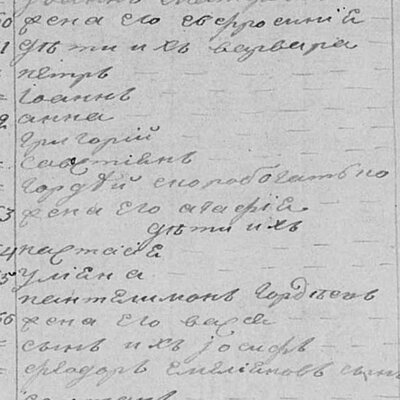 жена его евфросинїй
дѣти ихъ варвара
петръ
іоаннъ
анна
григорій
савастіянъ
гордѣй скоробогатько
жена его агафїй
дѣти ихъ
настасїй
уліяна
пантилимонъ гордѣевъ
жена его васса
сынъ ихъ іосифъ
феодоръ емеліяновъ сынъ